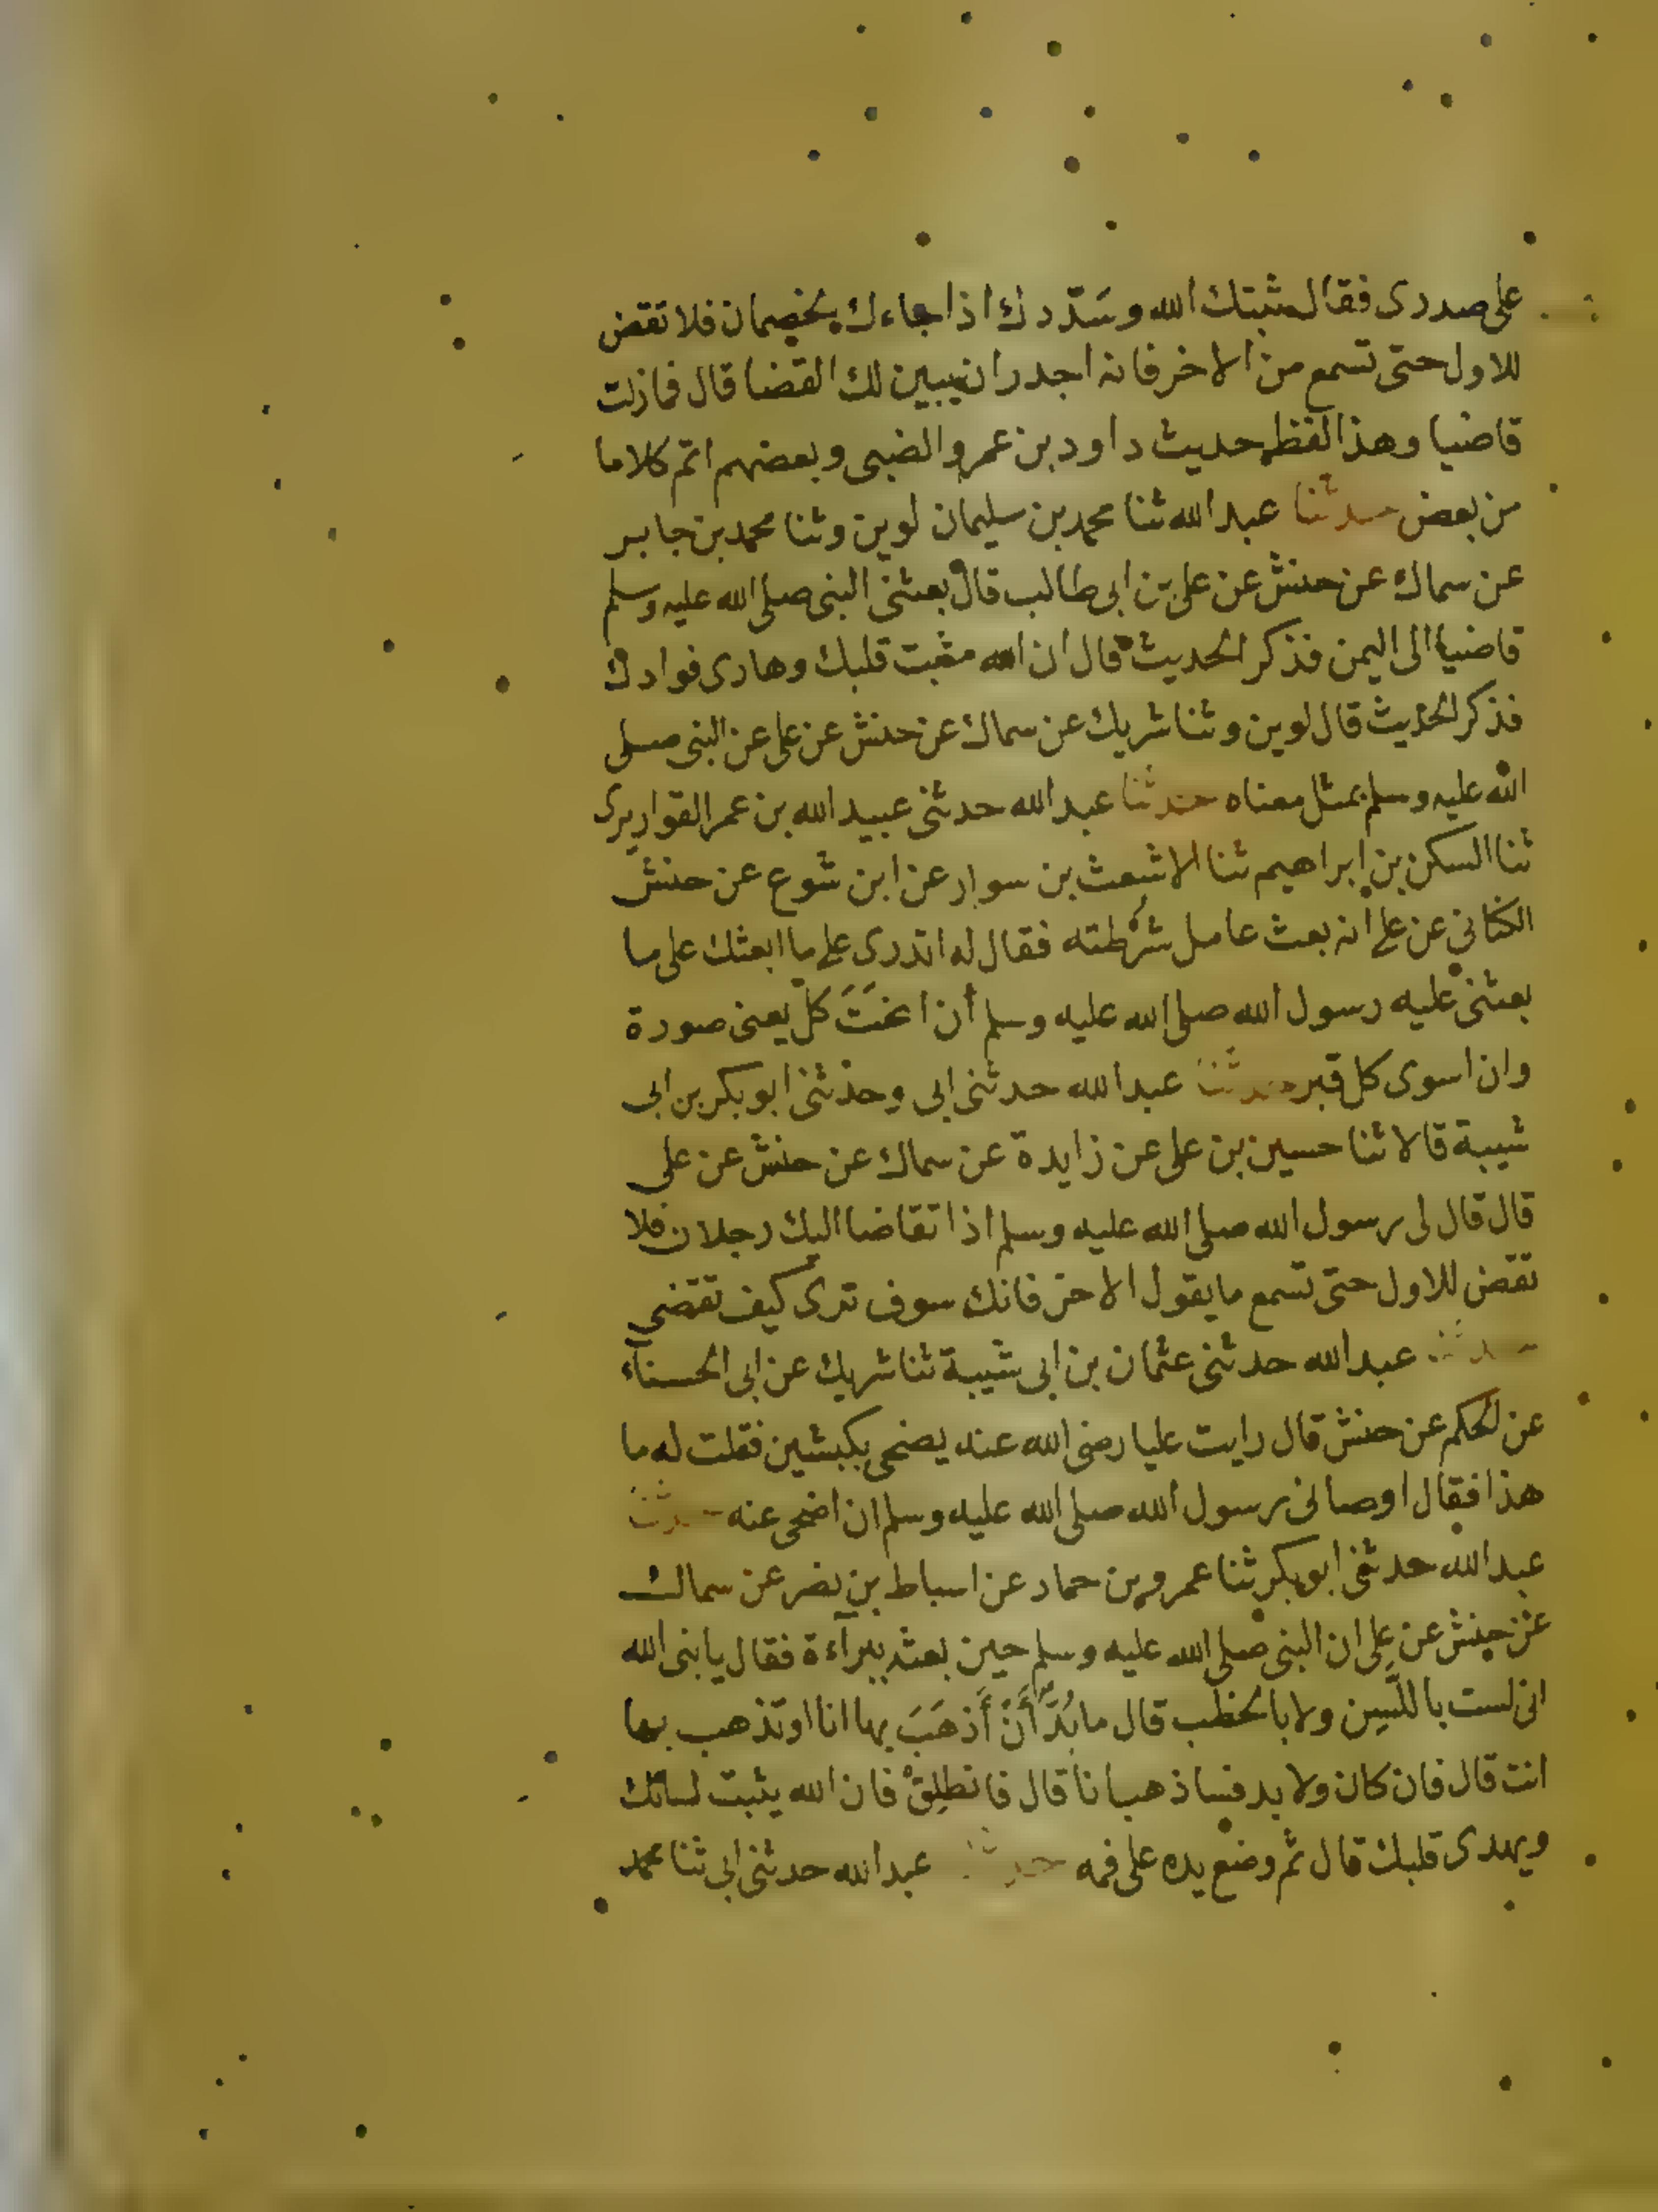 على صدرى فقال مثبتك الله وسَدّدك اذا جاءك الخصمان فلا تقض
للاول حتى تسمع من الاخر فانه اجدر ان يبين لك القضا قال فمازلت
قاضيا وهذا لفظ حديث داود بن عمرو الضبى وبعضهم اتم كلاما
من بعض حدثنا عبد الله ثنا محمد بن سليمان لوين وثنا محمد بن جابر
عن سماك عن حنش عن على بن ابى طالب قال بعثنى النبى صلى الله عليه وسلم
قاضيا الى اليمن فذكر الحديث قال ان الله مثبت قلبك وهادى فوادك
فذكر الحديث قال لوين وثنا شريك عن سماك عن حنش عن على عن النبى صلى
الله عليه وسلم بمثل معناه حدثنا عبد الله حدثنى عبيد الله بن عمر القواريرى
ثنا السكن بن ابراهيم ثنا الاشعث بن سوار عن ابن شوع عن حنش
الكنانى عن على انه بعث عامل شرطته فقال له اتدرى على ما ابعثك على ما
بعثنى عليه رسول الله صلى الله عليه وسلم أن انحَتَ كل يعنى صورة
وان اسوى كل قبر حدثنا عبد الله حدثنى ابى وحدثنى ابو بكر بن ابى
شيبة قالا ثنا حسين بن على عن زايدة عن سماك عن حنش عن على
قال قال لى رسول الله صلى الله عليه وسلم اذا تقاضا اليك رجلان فلا
تقض للاول حتى تسمع ما يقول الاخر فانك سوف ترى كيف تقضي
حدثنا عبد الله حدثنى عثمان بن ابى شيبة ثنا شريك عن ابى الحسناء
عن الحكم عن حنش قال رايت عليا رضى الله عنه يضحى بكبشين فقلت له ما
هذا فقال اوصانى رسول الله صلى الله عليه وسلم ان اضحى عنه حدثنا
عبد الله حدثنى ابو بكر ثنا عمرو بن حماد عن اسباط بن نصر عن سماك
عن حنش عن على ان النبى صلى الله عليه وسلم حين بعثه ببرآءة فقال يا نبى الله
انى لست باللَّسِن ولا بالخطب قال ما بُدَّ أَنْ أَذهَبَ بها انا او تذهب بها
انت قال فان كان ولا بد فساذهب انا قال فانطلِقْ فان الله يثبت لسانك
ويهدى قلبك قال ثم وضع يده على فمه حدثنا عبد الله حدثنى ابى ثنا محمد